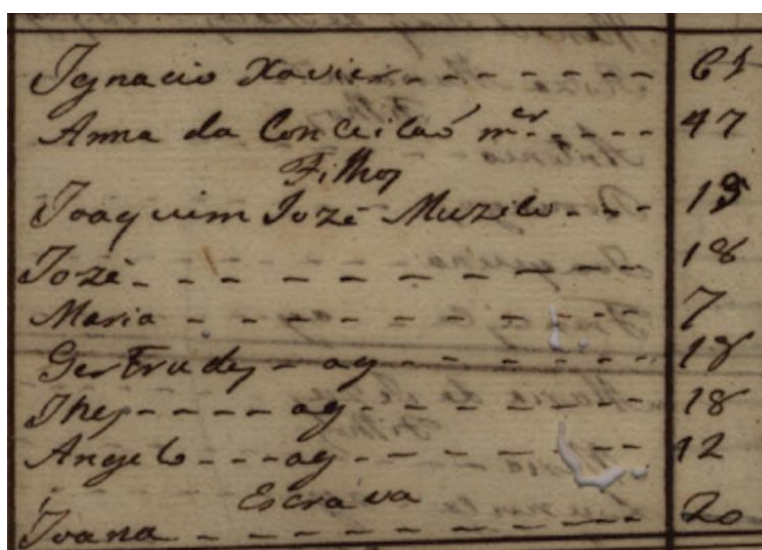 Ignacio Xavier - - - - - - - 61
Anna da Conceicaõ m.er - - - - - 47
Filhos
Joaquim Jozé Muzico - - - 19
Jozé - - - - - - - - - - 18
Maria - - - - - - - - - - 7
Gertrudes - ag - - - - - - - - 18
- - - - - ag - - - - - - - - 18
Angelo - - - ag - - - - - - - - 12
Escráva
Joana - - - - - - - - - - 20